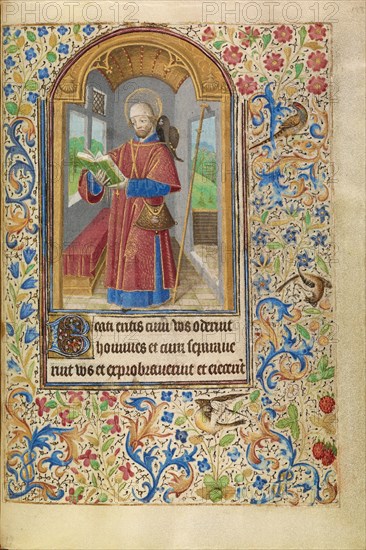 Beati eritis cum vos oderint
homines et cum separaue
rint vos et exprobraverint et eiecerit